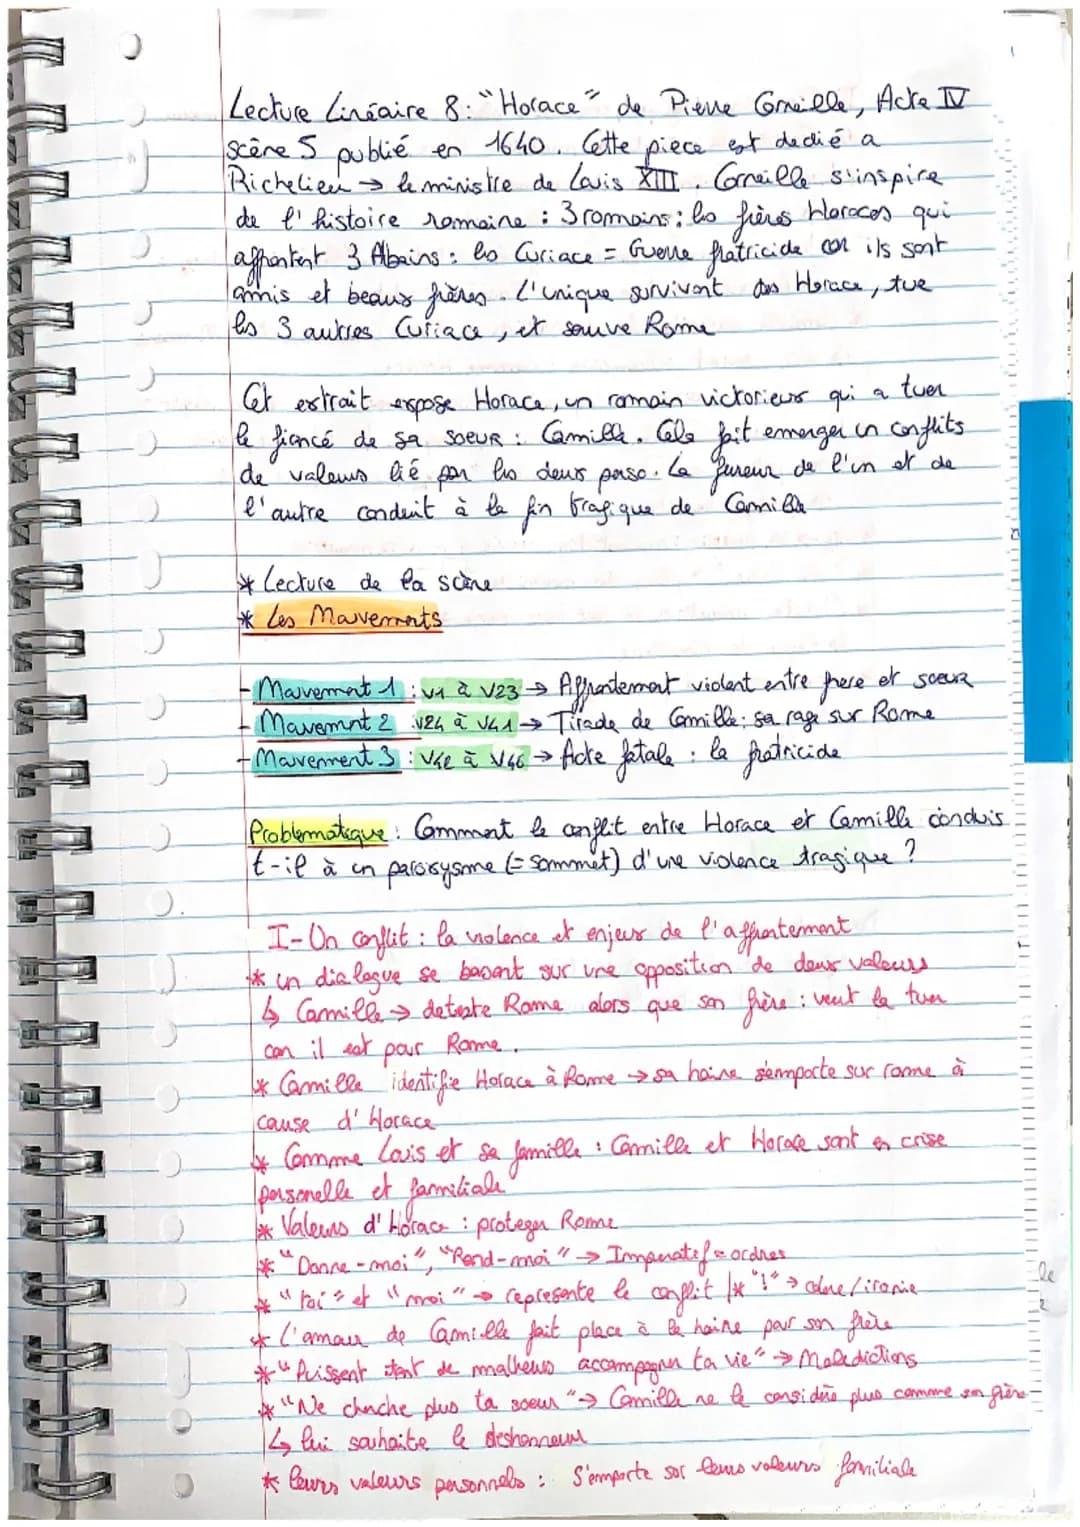 Lecture Linéaire 8: "Horace" de Pierre Corneille, Acte IV
scène 5 publié en 1640. Cette pièce est dedié a
Richelieu → le ministre de Louis XIII. Corneille s'inspire
de l'histoire romaine : 3 romains : les frères Horaces qui
affrontent 3 Albains : les Curiace = Guerre fratricide car ils sont
amis et beaux frères. L'unique survivant des Horace, tue
les 3 autres Curiace, et sauve Rome
Cet extrait expose Horace, un romain victorieux qui a tuer
le fiancé de sa soeur : Camille. Cela fait emerger un conflits
de valeurs lié par les deux perso. La fureur de l'un et de
l'autre conduit à la fin tragique de Camille
* Lecture de la scène
* Les Mouvements
- Mouvement 1 : v1 à v23 → Affrontement violent entre frere et soeur
- Mouvemnt 2 : v24 à v41 → Tirade de Camille : sa rage sur Rome
- Mouvement 3 : v42 à v46 → Acte fatale : le fratricide
Problematique : Comment le conflit entre Horace et Camille conduis
t-il à un paroxysme (= sommet) d'une violence tragique ?
I- Un conflit : la violence et enjeux de l'affrontement
* un dialogue se basant sur une opposition de deux valeurs
↳ Camille → deteste Rome alors que son frère : veut la tuer
car il est pour Rome.
* Camille identifie Horace à Rome → sa haine s'emporte sur rome à
cause d'Horace
* Comme Louis et sa famille : Camille et Horace sont en crise
personelle et familiale
* Valeurs d'Horace : proteger Rome
* "Donne-moi", "Rend-moi" → Imperatif = ordres
* "toi" et "moi" → represente le conflit |* "!" → colere/ironie
* L'amour de Camille fait place à la haine pour son frère
* "Puissent tant de malheurs accompagner ta vie" → Maledictions
* "Ne cherche plus ta soeur" → Camille ne le considère plus comme son frère
↳ lui souhaite le deshonneur
* leurs valeurs personnels : S'emporte sur leurs valeurs familiale